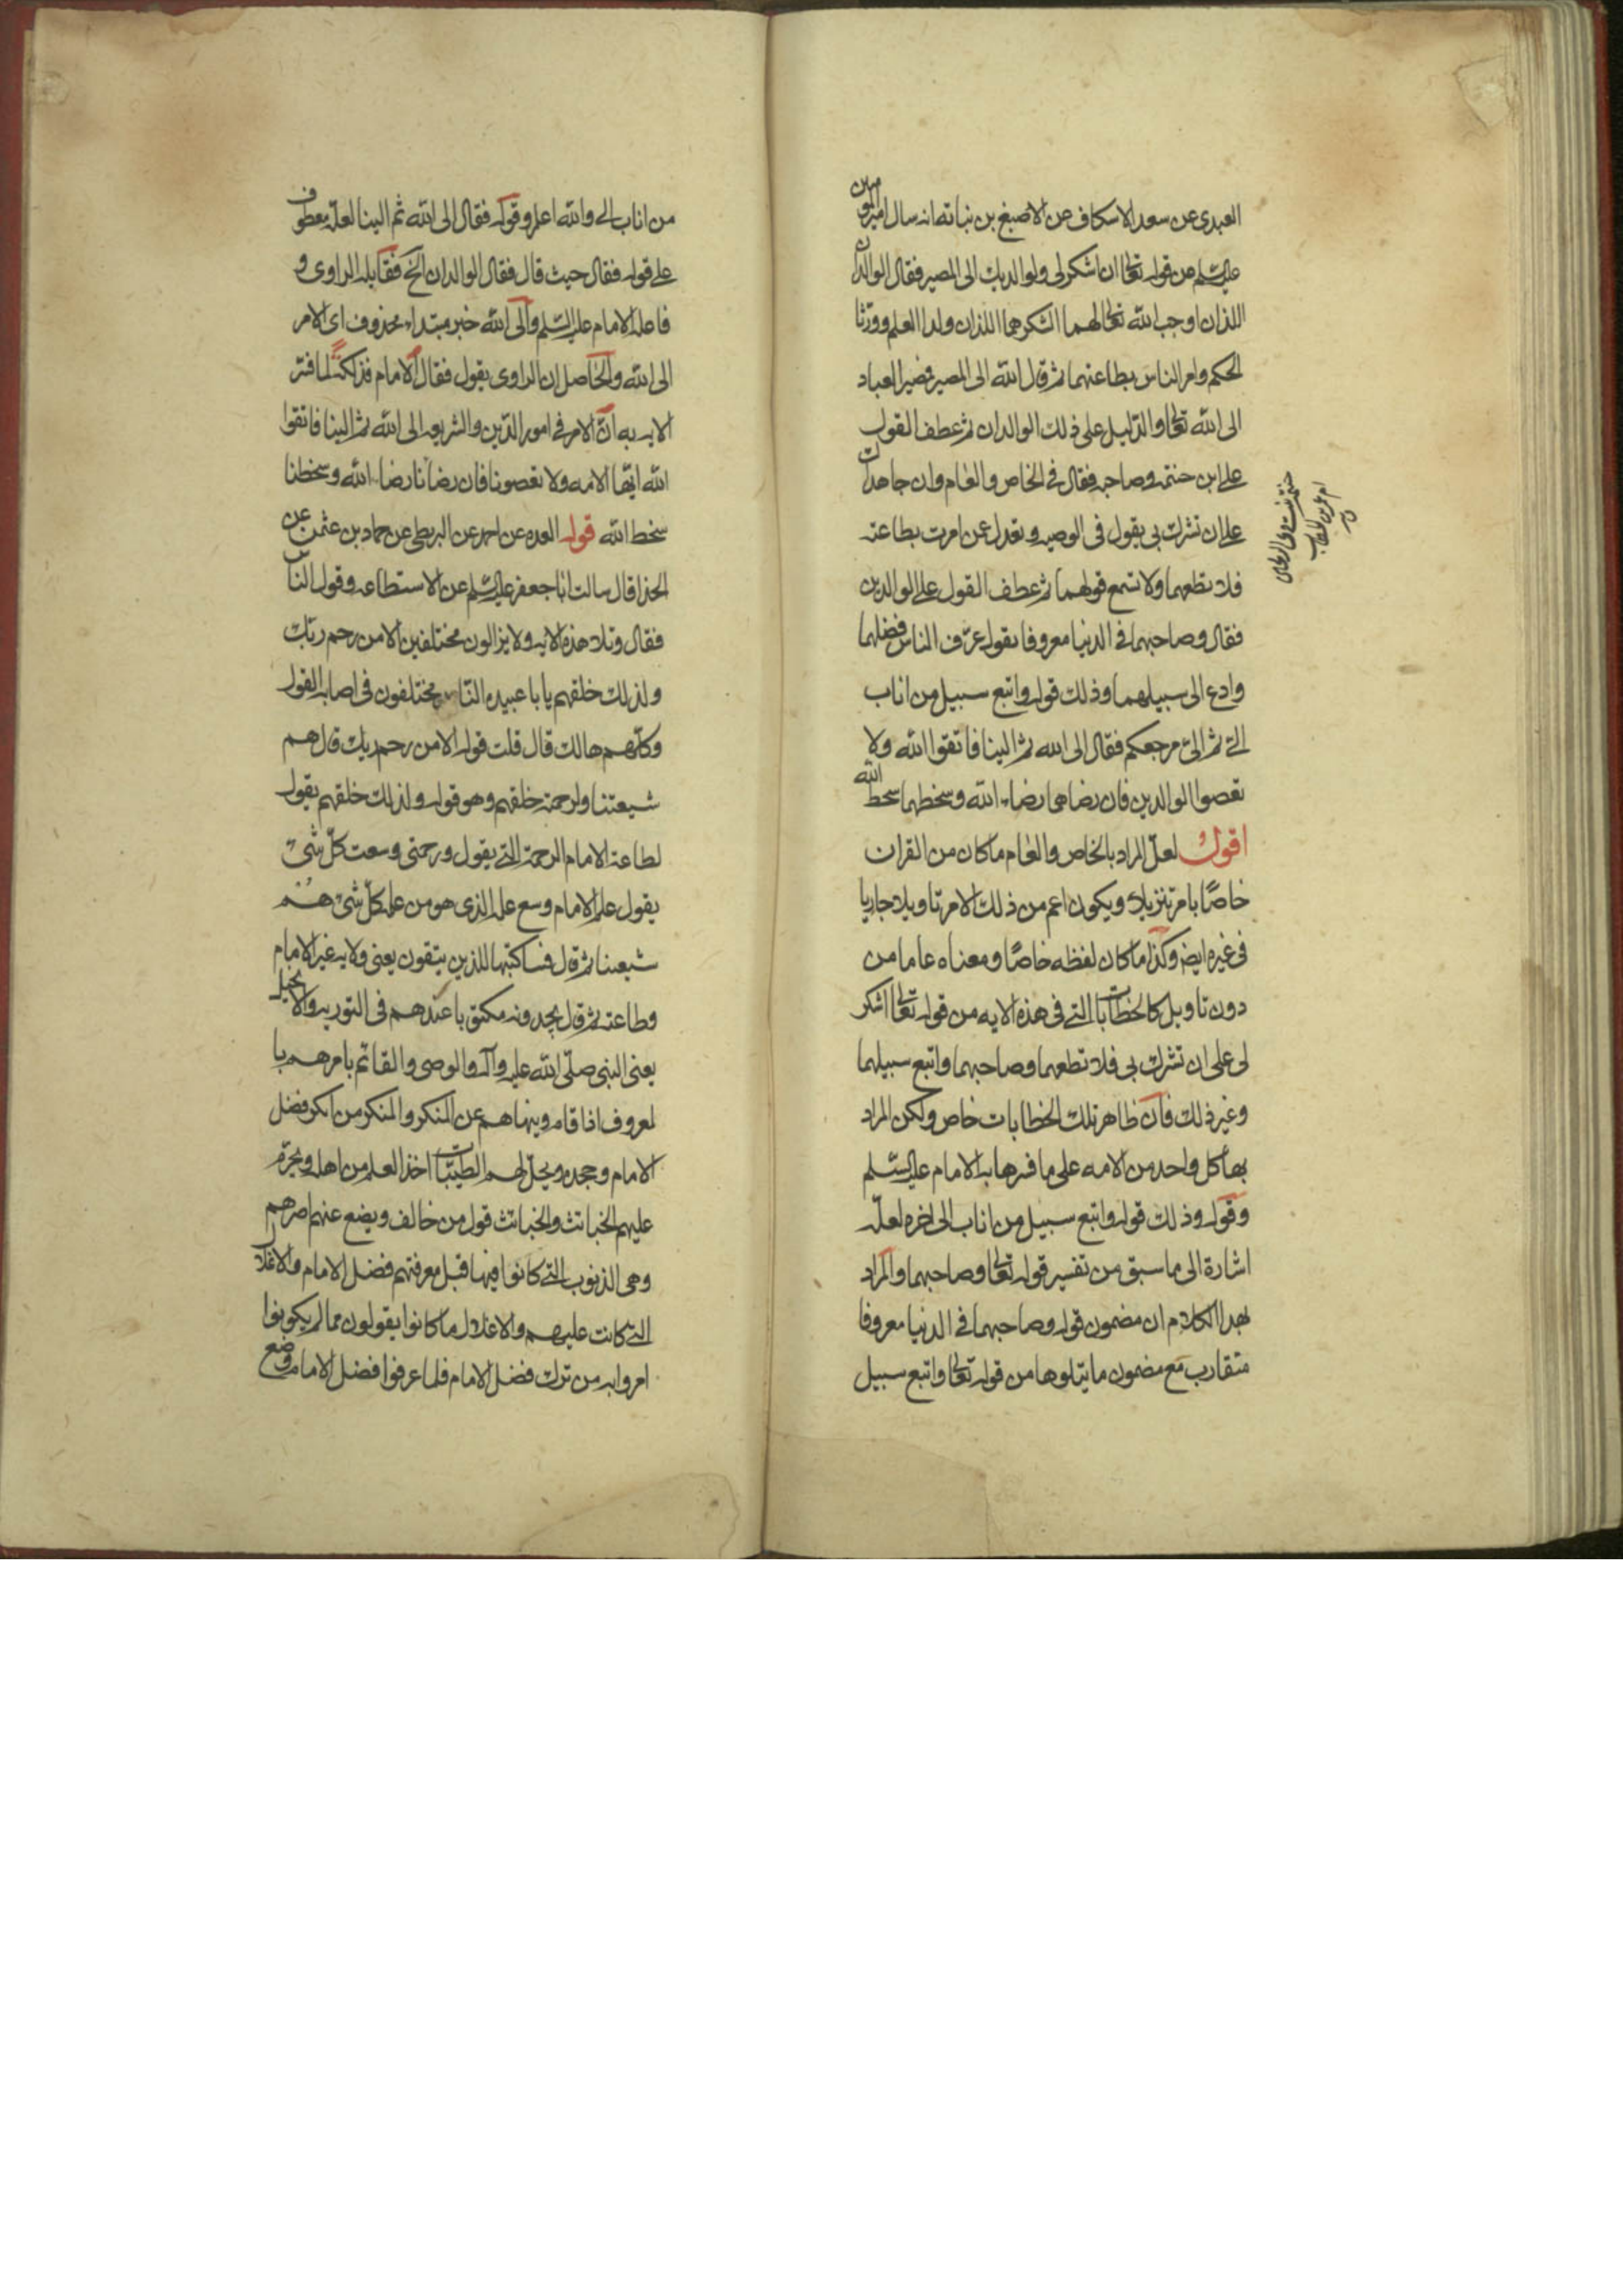 العبدى عن سعد الاسكاف عن الاصبغ بن نباته انه سال امير المومنين
عليه السلم عن قوله تعالى ان اشكر لى ولوالديك الى المصير فقال الوالدان
اللذان اوجب الله تعالى لهما الشكر هما اللذان ولدا العلم وورثا
الحكم وامر الناس بطاعتهما ثم قال الله الى المصير فمصير العباد
الى الله تعالى والدليل على ذلك الوالدان ثم عطف القول
على ابن حنتمه وصاحبه فقال فى الخاص والعام وان جاهداك
على ان تشرك بى يقول فى الوصيه وتعدل عمن امرت بطاعته
فلا تطعهما ولا تسمع قولهما ثم عطف القول على الوالدين
فقال وصاحبهما فى الدنيا معروفا يقول عرف الناس فضلهما
وادع الى سبيلهما وذلك قوله واتبع سبيل من اناب
الى ثم الى مرجعكم فقال الى الله ثم الينا فاتقوا الله ولا
تعصوا الوالدين فان رضاهما رضاء الله وسخطهما سخط الله
اقول لعل المراد بالخاص والعام ما كان من القران
خاصا بامر تنزيلا ويكون اعم من ذلك الامر تاويلا جاريا
فى غيره ايضا وكذا ما كان لفظه خاصا ومعناه عاما من
دون تاويل كالخطابات التى فى هذه الايه من قوله تعالى اشكر
لى على ان تشرك بى فلا تطعهما وصاحبهما واتبع سبيلهما
وغير ذلك فان ظاهر تلك الخطابات خاص ولكن المراد
بها كل واحد من الامه على ما فسرها به الامام عليه السلم
وقوله وذلك قوله واتبع سبيل من اناب الى اخره لعله
اشارة الى ما سبق من تفسير قوله تعالى وصاحبهما والمراد
بهذا الكلام ان مضمون قوله وصاحبهما فى الدنيا معروفا
متقارب مع مضمون ما يتلوها من قوله تعالى واتبع سبيل
ام عمر بن الخطاب
من اناب الى والله اعلم وقوله فقال الى الله ثم الينا لعله معطوف
على قوله فقال حيث قال فقال الوالدان الخ فقابله الراوى و
فاعله الامام عليه السلم والى الله خبر مبتداء محذوف اى الامر
الى الله والحاصل ان الراوى يقول فقال الامام لما فسر
الايه به ان الامر فى امور الدين والشريعه الى الله ثم الينا فاتقوا
الله ايها الامه ولا تعصونا فان رضانا رضاء الله وسخطنا
سخط الله قوله العده عن احمد عن البزنطى عن حماد بن عثمن عن
الحذا قال سالت ابا جعفر عليه السلم عن الاستطاعه وقول الناس
فقال وتلا هذه الايه ولا يزالون مختلفين الا من رحم ربك
ولذلك خلقهم يا با عبيده الناس مختلفون فى اصابه القول
وكلهم هالك قال قلت قوله الا من رحم ربك قال هم
شيعتنا ولرحمته خلقهم وهو قوله ولذلك خلقهم يقول
لطاعه الامام الرحمة التى يقول ورحمتى وسعت كل شئ
يقول علم الامام وسع علمه الذى هو من علمه كل شئ هم
شيعتنا ثم قال فساكتبها للذين يتقون يعنى ولايه غير الامام
وطاعته ثم قال يجدونه مكتوبا عندهم فى التوريه والانجيل
يعنى النبى صلى الله عليه وآله والوصى والقائم يامرهم با
لمعروف اذا قام وينهاهم عن المنكر والمنكر من انكر فضل
الامام وجحده ويحل لهم الطيبات اخذ العلم من اهله ويحرم
عليهم الخبائث والخبائث قول من خالف ويضع عنهم اصرهم
وهى الذنوب التى كانوا فيها قبل معرفتهم فضل الامام والاغلال
التى كانت عليهم والاغلال ما كانوا يقولون مما لم يكونوا
امروا به من ترك فضل الامام فلما عرفوا فضل الامام وضع